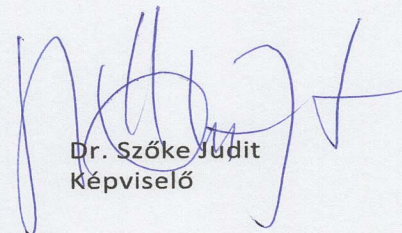 Dr. Szőke Judit
Képviselő